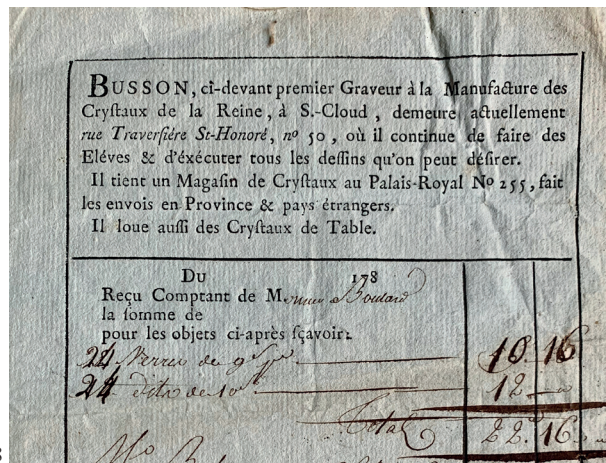 BUSSON, cí-devant premier Graveur à la Manufacture des
Cryſtaux de la Reine, à S.-Cloud, demeure actuellement
rue Traverſiére St-Honoré, nº 50, où il continue de faire des
Eléves & d'exécuter tous les deſſins qu'on peut déſirer.
Il tient un Magaſin de Cryſtaux au Palais-Royal Nº 255, fait
les envois en Province & pays étrangers.
Il loue auſſi des Cryſtaux de Table.
Du 178
Reçu Comptant de Monsieur Boulard
la ſomme de
pour les objets ci-après ſçavoir:
24 Verres de 10 16
24 Dito de 10 12
Total 22 16